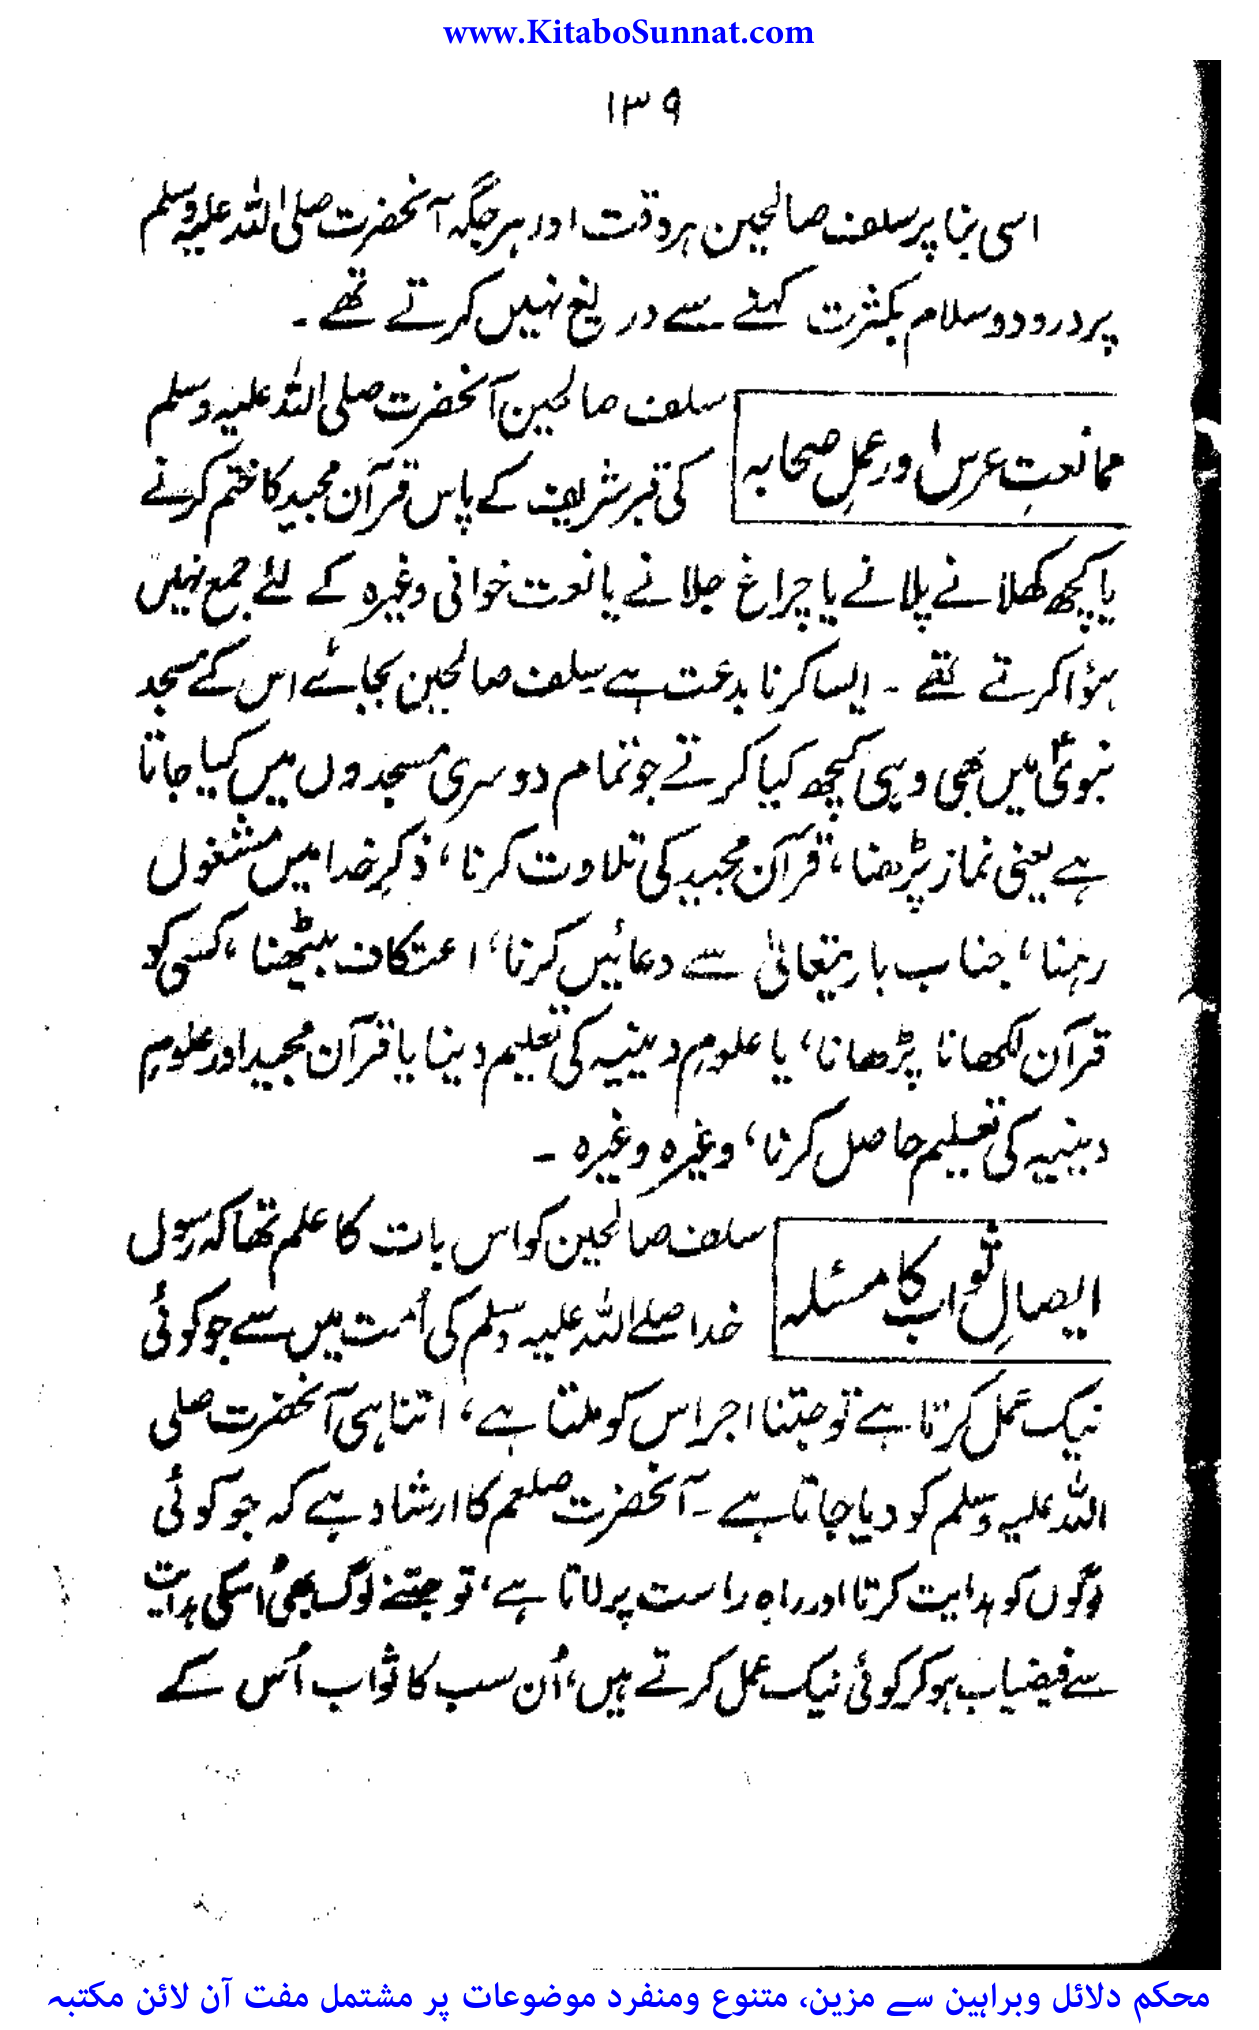 www.KitaboSunnat.com
۱۳۹
اسی بنا پر سلف صالحین ہر وقت اور ہر جگہ آنحضرت صلی اللہ علیہ وسلم
پر درود و سلام بکثرت کہنے سے دریغ نہیں کرتے تھے ۔
ممانعتِ عرس اور عملِ صحابہ
سلف صالحین آنحضرت صلی اللہ علیہ وسلم
کی قبر شریف کے پاس قرآن مجید کا ختم کرنے
یا کچھ کھلانے پلانے یا چراغ جلانے یا نعت خوانی وغیرہ کے لئے جمع نہیں
ہؤا کرتے تھے ۔ ایسا کرنا بدعت ہے سلف صالحین بجائے اس کے مسجد
نبویؐ میں بھی وہی کچھ کیا کرتے جو تمام دوسری مسجدوں میں کیا جاتا
ہے یعنی نماز پڑھنا ، قرآن مجید کی تلاوت کرنا ، ذکرِ خدا میں مشغول
رہنا ، جناب باریتعالیٰ سے دعائیں کرنا ، اعتکاف بیٹھنا ، کسی کو
قرآن لکھانا پڑھانا ، یا علومِ دینیہ کی تعلیم دینا یا قرآن مجید اور علومِ
دینیہ کی تعلیم حاصل کرنا ، وغیرہ وغیرہ ۔
ایصالِ ثواب کا مسئلہ
سلف صالحین کو اس بات کا علم تھا کہ رسول
خدا صلے اللہ علیہ وسلم کی اُمت میں سے جو کوئی
نیک عمل کرتا ہے تو جتنا اجر اس کو ملتا ہے ، اتنا ہی آنحضرت صلی
اللہ علیہ وسلم کو دیا جاتا ہے ۔ آنحضرت صلعم کا ارشاد ہے کہ جو کوئی
لوگوں کو ہدایت کرتا اور راہِ راست پر لاتا ہے ، تو جتنے لوگ بھی اُسکی ہدایت
سے فیضیاب ہو کر کوئی نیک عمل کرتے ہیں ، اُن سب کا ثواب اُس کے
محکم دلائل وبراہین سے مزین، متنوع ومنفرد موضوعات پر مشتمل مفت آن لائن مکتبہ